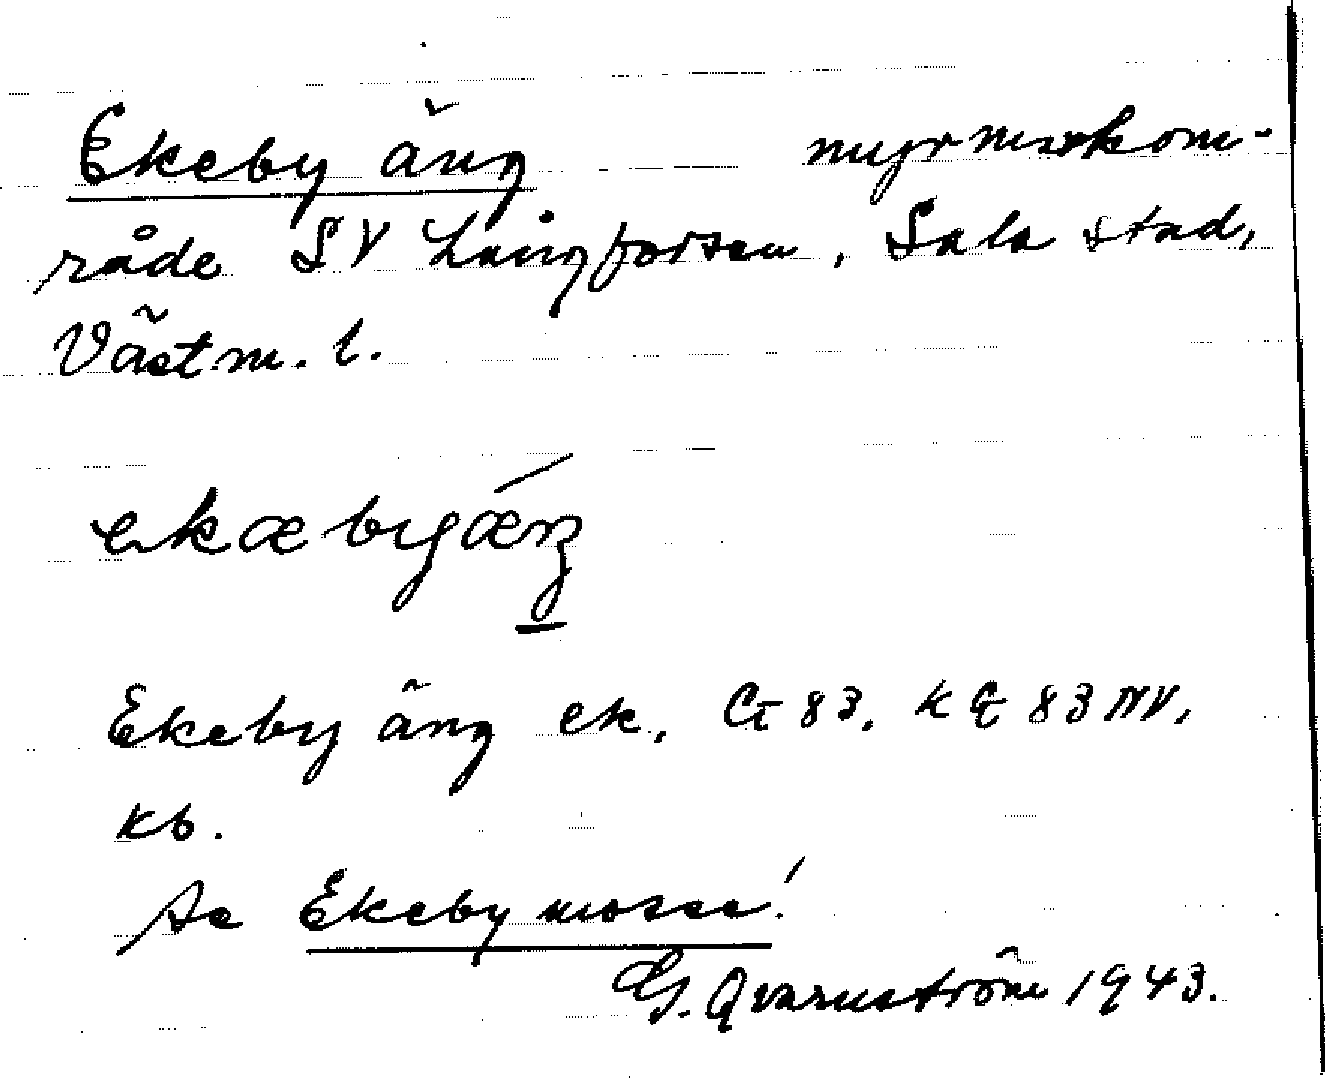 Ekeby äng myrmarkom-
råde SV Långforsen, Sala stad,
Västm. l.
ekæbyǽŋ
Ekeby äng ek, GK 83. NV,
kb.
Se Ekeby mosse!
G. Qvarnström 1943.